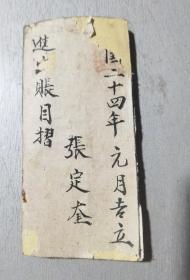 国二十四年元月吉立
張定奎
進出賬目摺